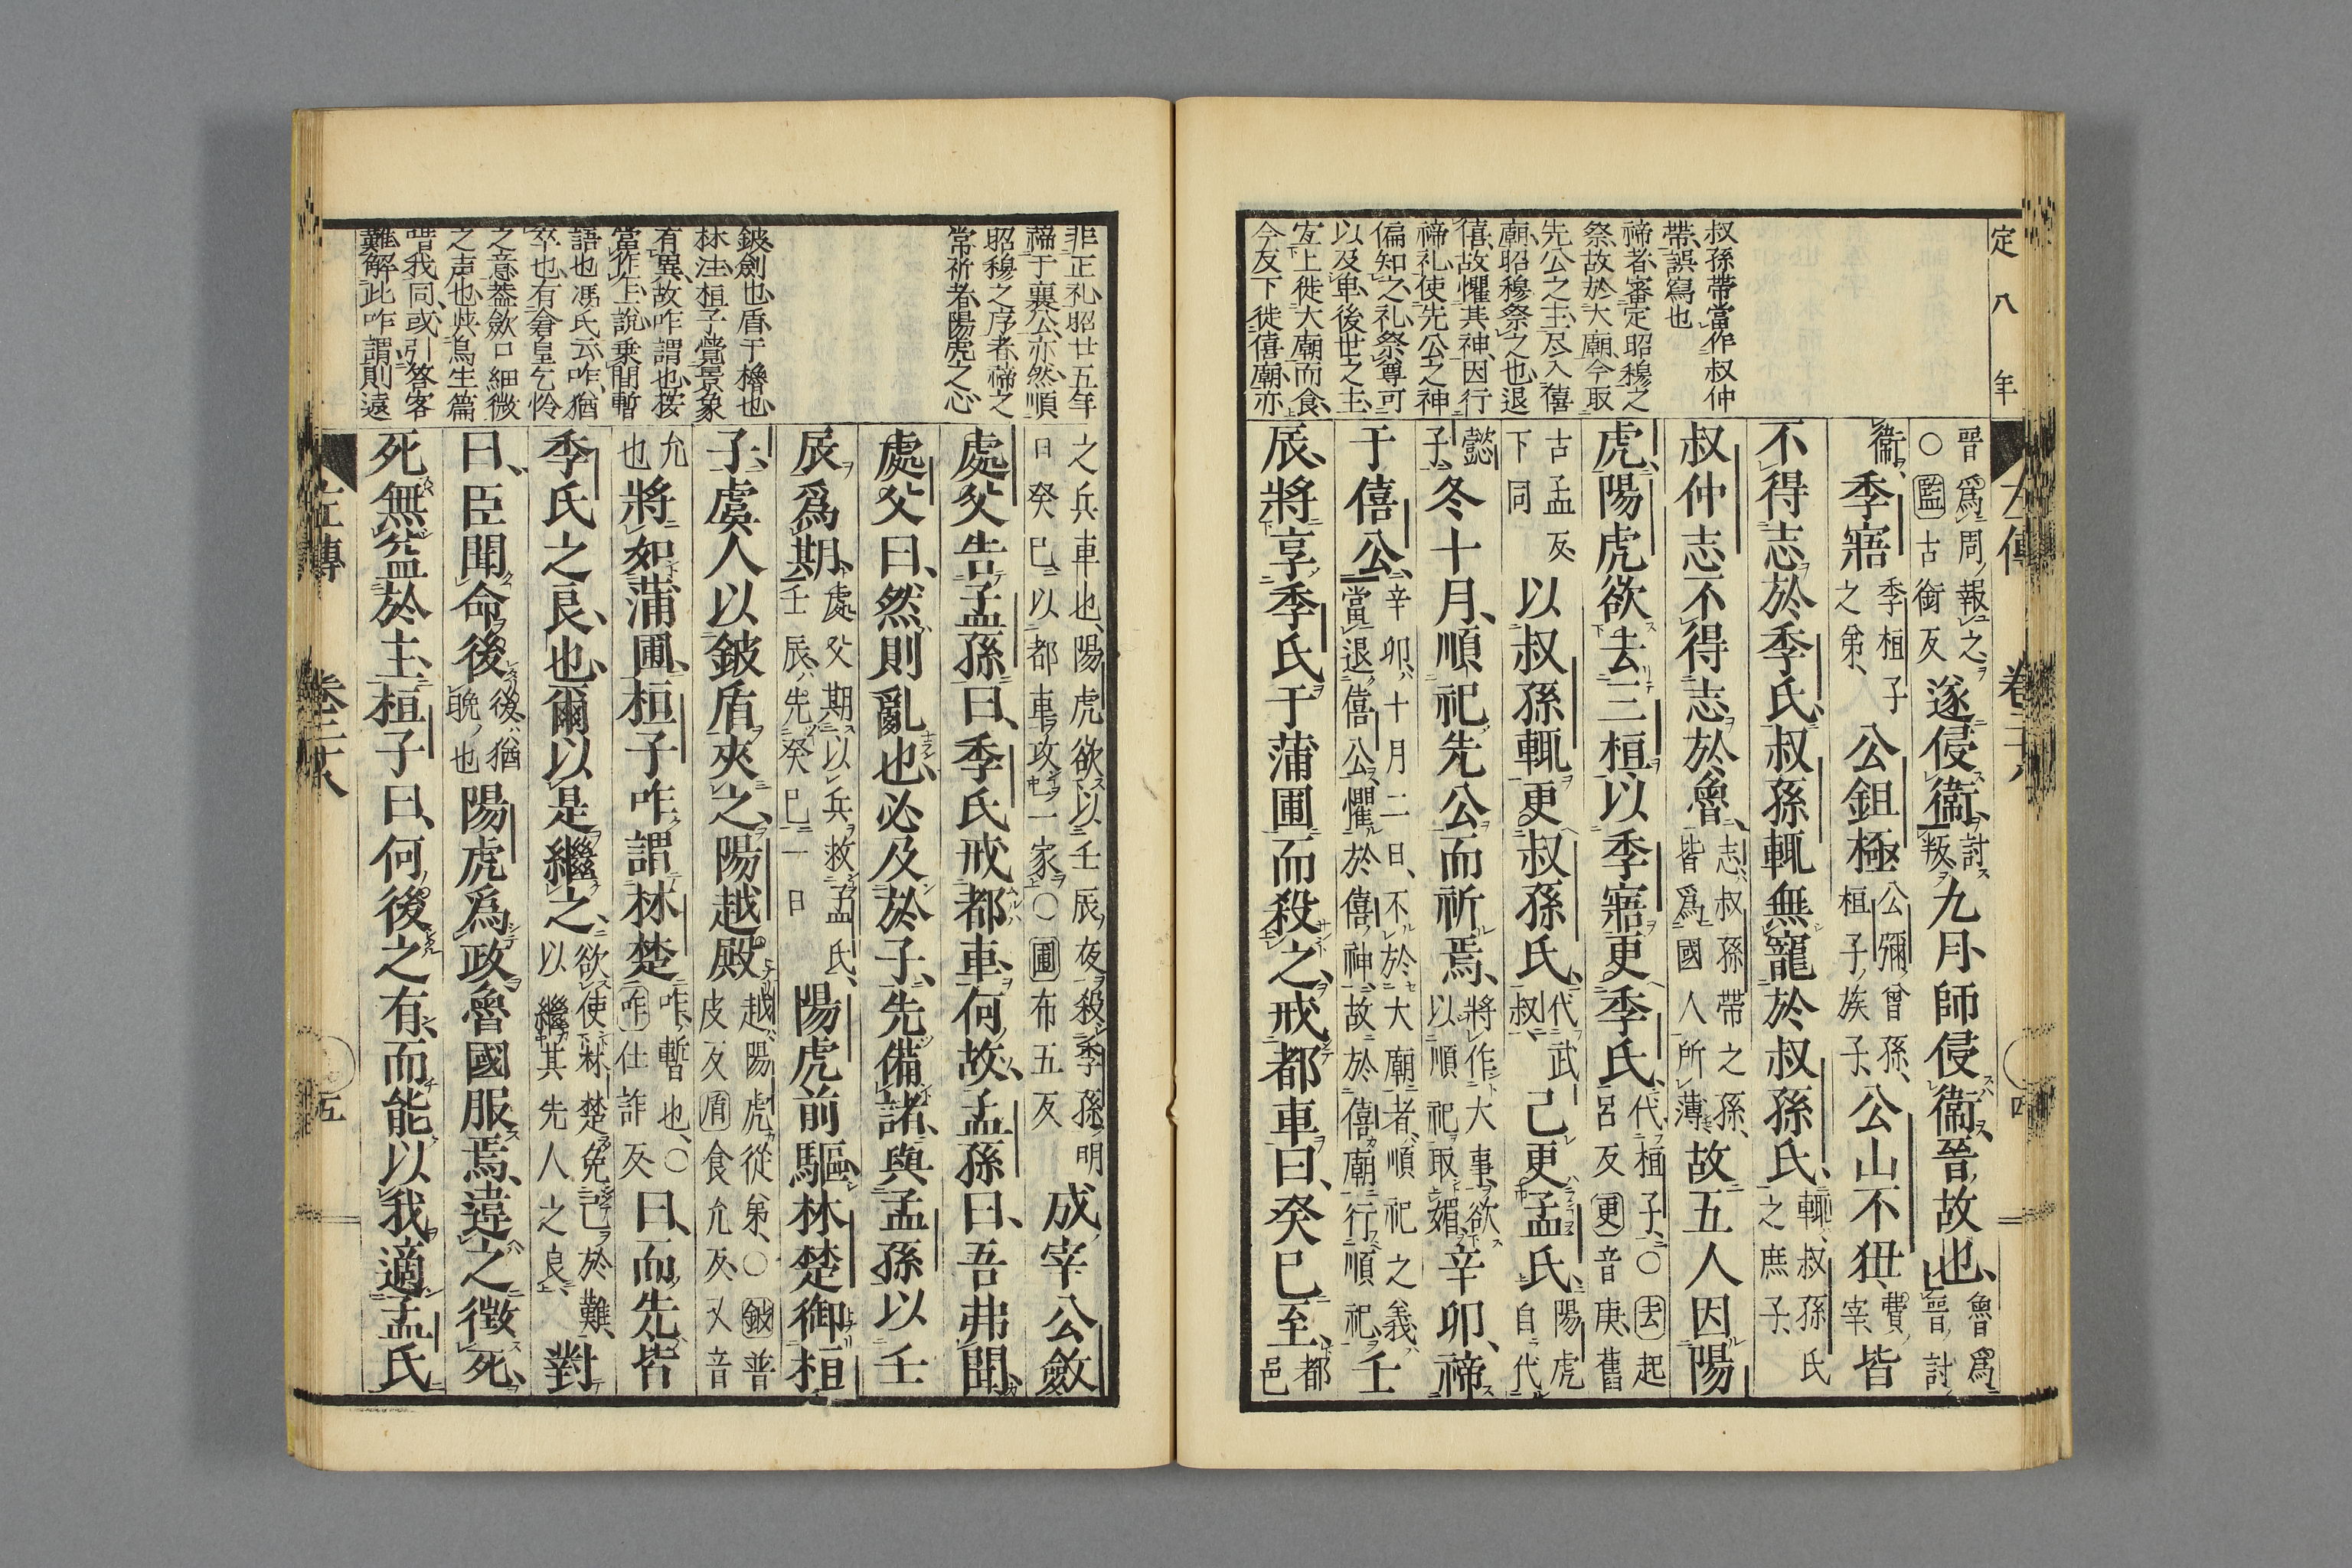 定八年
叔孫帶當作叔仲
帶誤寫也
禘者審定昭穆之
祭故於大廟今取
先公之主尽入僖
廟昭穆祭之也退
僖故懼其神因行
禘礼使先公之神
偏知之礼祭尊可
以及卑後世之主
宜上徙大廟而食
今友下徙僖廟亦
左傳 卷二十八 四
晉爲周報之○監古銜反遂侵衞討叛九月師侵衞晉故也魯爲晉討
衞季寤季桓子之弟公鉏極公彌曾孫桓子族子公山不狃費宰皆
不得志於季氏叔孫輒無寵於叔孫氏輒叔孫氏之庶子
叔仲志不得志於魯志叔孫帶之孫皆爲國人所薄故五人因陽
虎陽虎欲去三桓以季寤更季氏代桓子○去起呂反更音庚舊
古孟反下同以叔孫輒更叔孫氏代武叔己更孟氏陽虎自代
懿子冬十月順祀先公而祈焉將作大事欲以順祀取媚辛卯禘
于僖公辛卯十月二日不於大廟者順祀之義當退僖公懼於僖神故於僖廟行順祀壬
辰將享季氏于蒲圃而殺之戒都車曰癸巳至都邑
非正礼昭廿五年
禘于襄公亦然順
昭穆之序者禘之
常祈者陽虎之心
鈹劍也盾干櫓也
林注桓子覺景象
有異故咋謂也按
當作乍上說乗間暫
語也馮氏云咋猶
卒也有倉皇乞怜
之意葢歛口細微
之声也
譖我同或引答客
難解此咋謂則遠
之兵車也陽虎欲以壬辰夜殺季孫明日癸巳以都車攻二家○圃布五反成宰公斂
處父告孟孫曰季氏戒都車何故孟孫曰吾弗聞
處父曰然則亂也必及於子先備諸與孟孫以壬
辰爲期處父期以兵救孟氏壬辰先癸巳一日陽虎前驅林楚御桓
子虞人以鈹盾夾之陽越殿越陽虎從弟○鈹普皮反盾食允反又音
允也將如蒲圃桓子咋謂林楚咋暫也○咋仕詐反曰而先皆
季氏之良也爾以是繼之欲使林楚免己於難以繼其先人之良對
曰臣聞命後後猶晩也陽虎爲政魯國服焉違之徵死
死無益於主桓子曰何後之有而能以我適孟氏
左傳 卷二十八 五